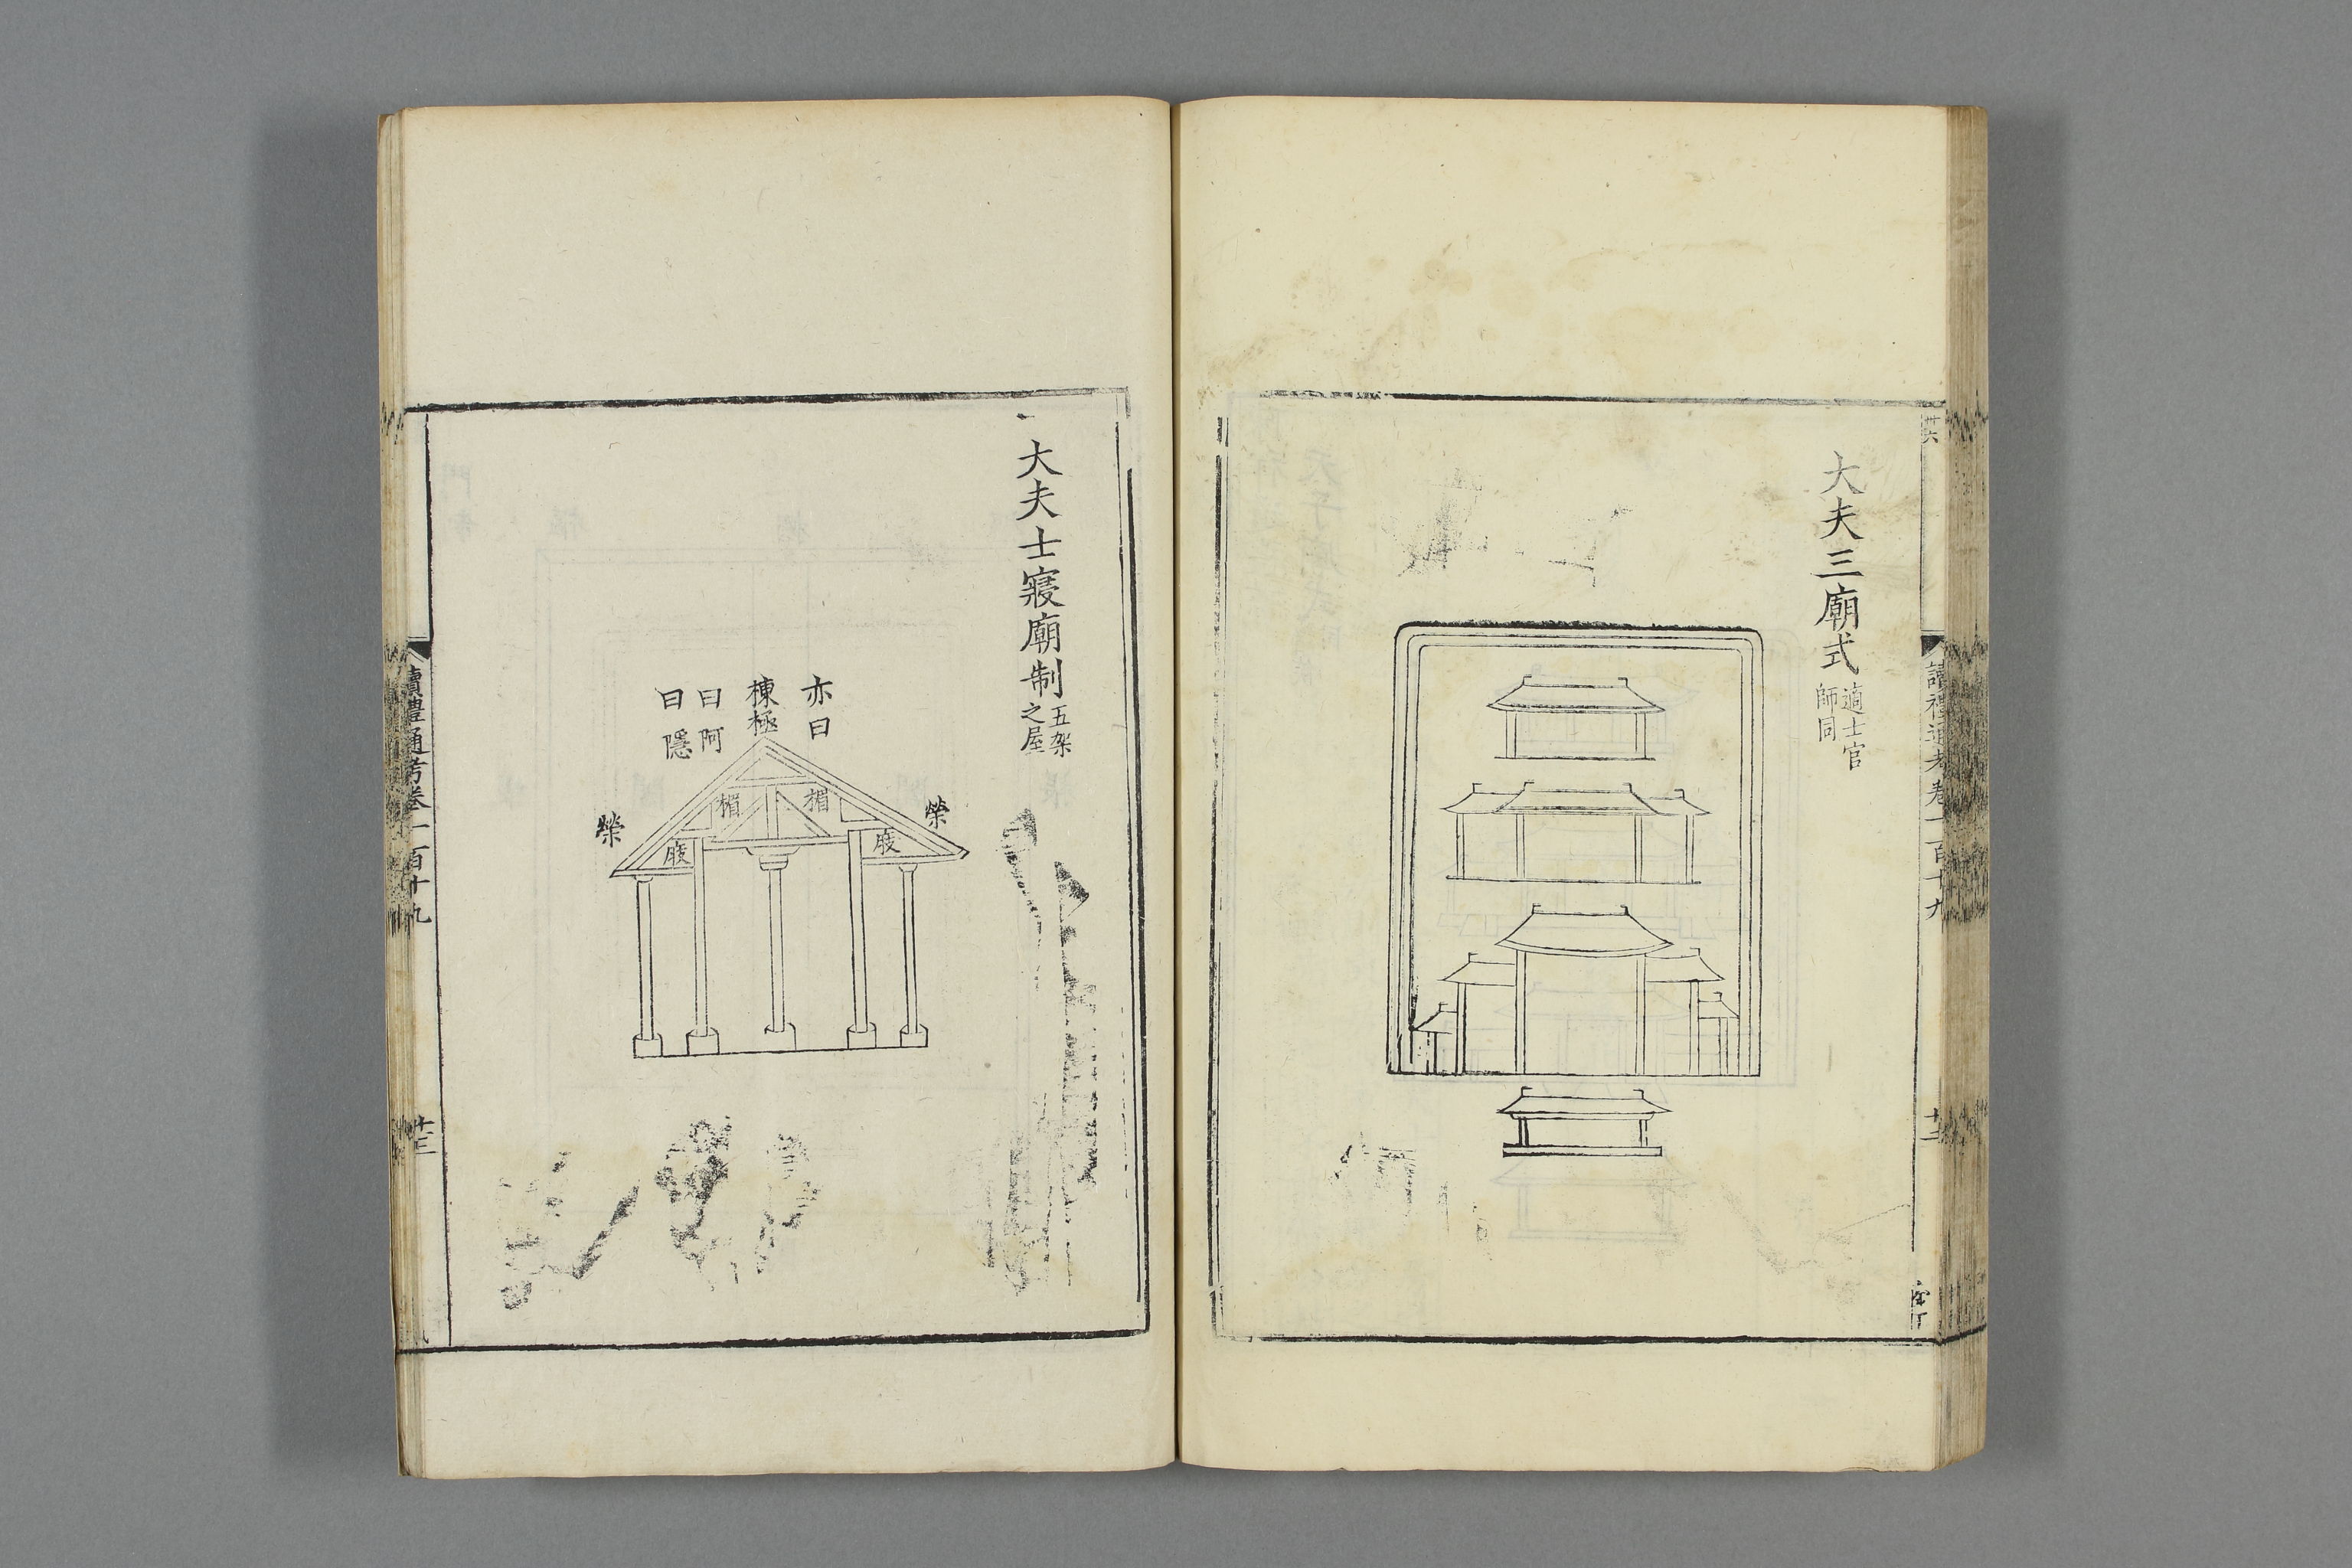 大夫三廟式
適士官
師同
讀禮通考卷一百十九
大夫士寢廟制
五架
之屋
亦曰
棟極
曰阿
曰隱
榮
楣
楣
榮
庪
庪
讀禮通考卷一百十九